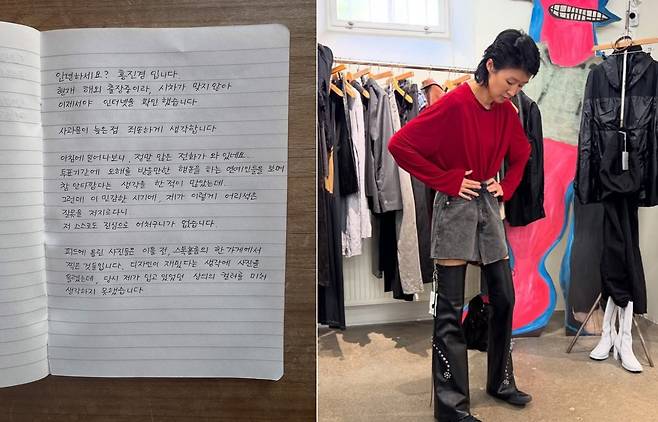 안녕하세요? 홍진경 입니다.
현재 해외 출장중이라, 시차가 맞지 않아
이제서야 인터넷을 확인했습니다
사과문이 늦은점 죄송하게 생각합니다
아침에 일어나보니, 정말 많은 전화가 와 있네요.
투표기간에 오해를 받을만한 행동을 하는 연예인들을 보며
참 안타깝다는 생각을 한 적이 많았는데,
그런데 이 민감한 시기에, 제가 이렇게 어리석은
잘못을 저지르다니
저 스스로도 진심으로 어처구니가 없습니다.
피드에 올린 사진들은 이틀 전, 스톡홀롬의 한 가게에서
찍은 것들입니다. 디자인이 재밌다는 생각에 사진을
올렸는데, 당시 제가 입고 있었던 상의의 컬러를 미처
생각하지 못했습니다